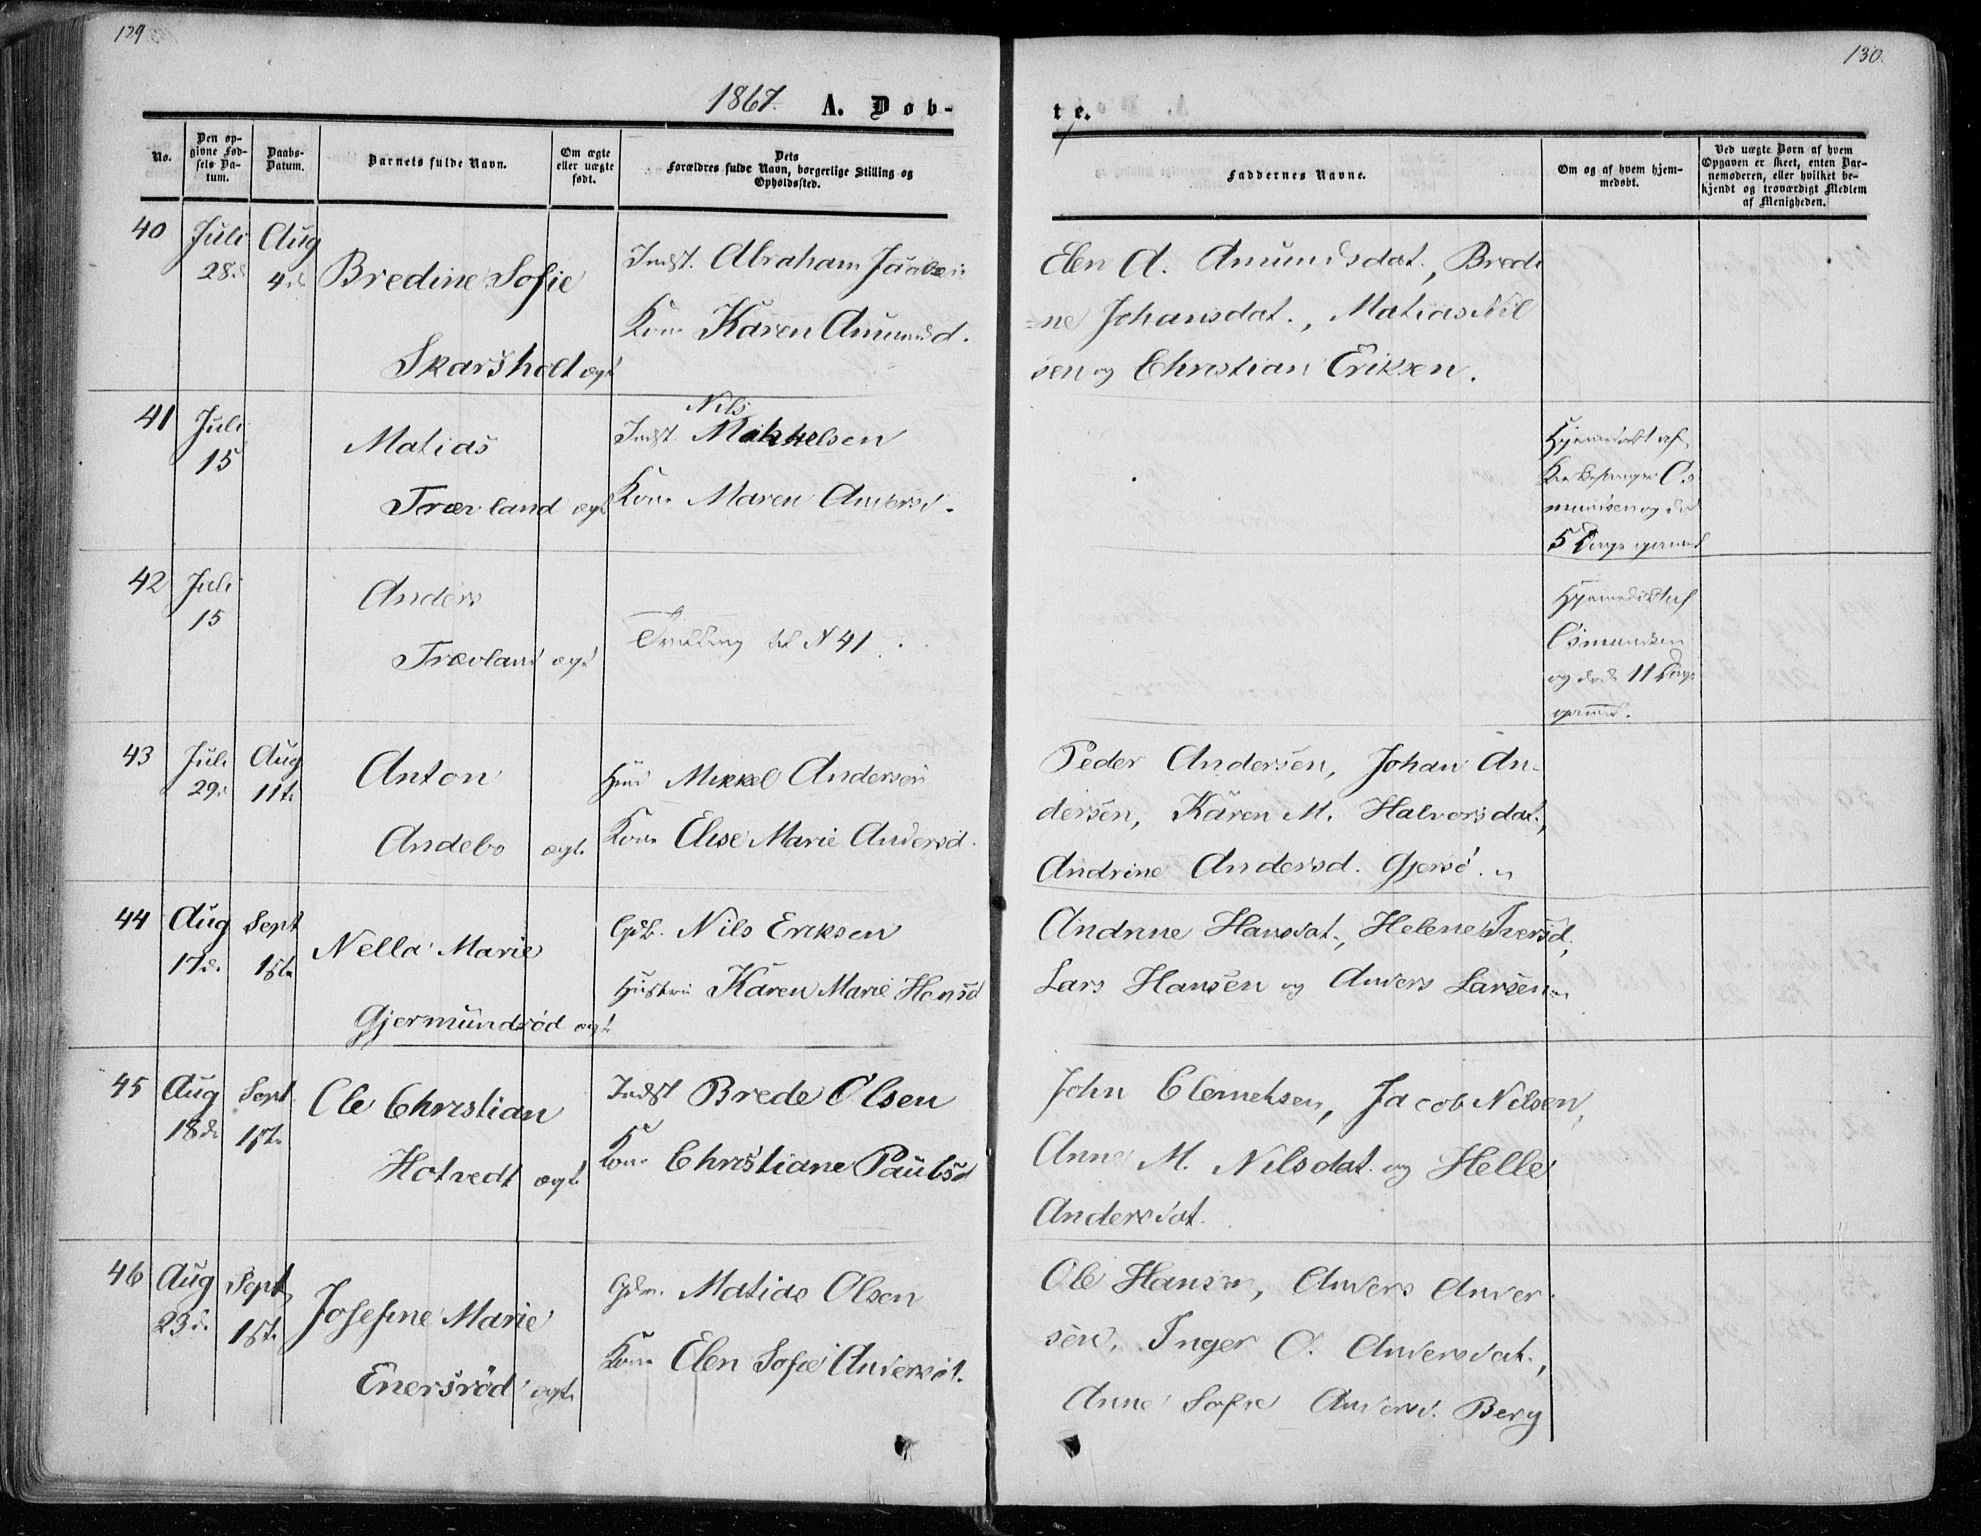 129
130.
1867. A. Døb-
te.
No.
Den op-
givne Fød-
sels Da-
tum.
Daabs-
Datum.
Barnets fulde Navn.
Om ægte
eller uægte
født.
Dets
Forældres fulde Navn, borgerlige Stilling og
Opholdssted.
Faddernes Navne.
Om og af hvem hjem-
medøbt.
Ved uægte Børn af hvem
Opgaven er skeet, enten Bar-
nemoderen, eller hvilket be-
kjendt og troværdigt Medlem
af Menigheden.
40 Juli Aug
28de 4de
Bredine Sofie
Skarsholt ægt
Indst. Abraham
Kone Karen Amundsd.
Elen A. Amundsdat., Bredi
=ne Johansdat., Matias Nil
sen og Christian Eriksen.
41 Juli
15
Matias
Trævland ægt
Nils
Indst. Mikkelsen
Kone Maren Andersd.
Hjemmedøbt af
Kirkesanger Os
mundsen og død
5 Dage gammel
42 Juli
15
Anders
Trævland ægt
Tvilling til N 41.
Hjemmedøbt af
Osmundsen
og døde 11 Dage
gammel.
43 Juli Aug
29de 11te
Anton
Andebo ægt.
Mikkel Andersen
Kone Elise Marie Andersd.
Peder Andersen, Johan An-
dersen, Karen M. Halvorsdat.,
Andrine Andersd. Gjersø.
44 Aug Sept
17de 1ste
Nella Marie
Gjermundrød ægt
Gdb. Nils Eriksen
Hustru Karen Marie Hansd
Andrine Hansdat., Helene Iversd,
Lars Hansen og Anders Larsen
45 Aug Sept.
18de 1ste
Ole Christian
Hotvedt ægt
Indst Brede Olsen
Kone Christiane Paulsd
John Clemetsen, Jacob Nilsen,
Anne M. Nilsdat. og Helle
Andersdat.
46 Aug Sept
23de 1ste
Josefine Marie
Enersrød ægt.
Gdm. Matias Olsen
Kone Elen Sofie Andersdt.
Ole Hansen, Anders Ander-
sen, Inger O. Andersdat.,
Anne Sofie Andersd. Berg